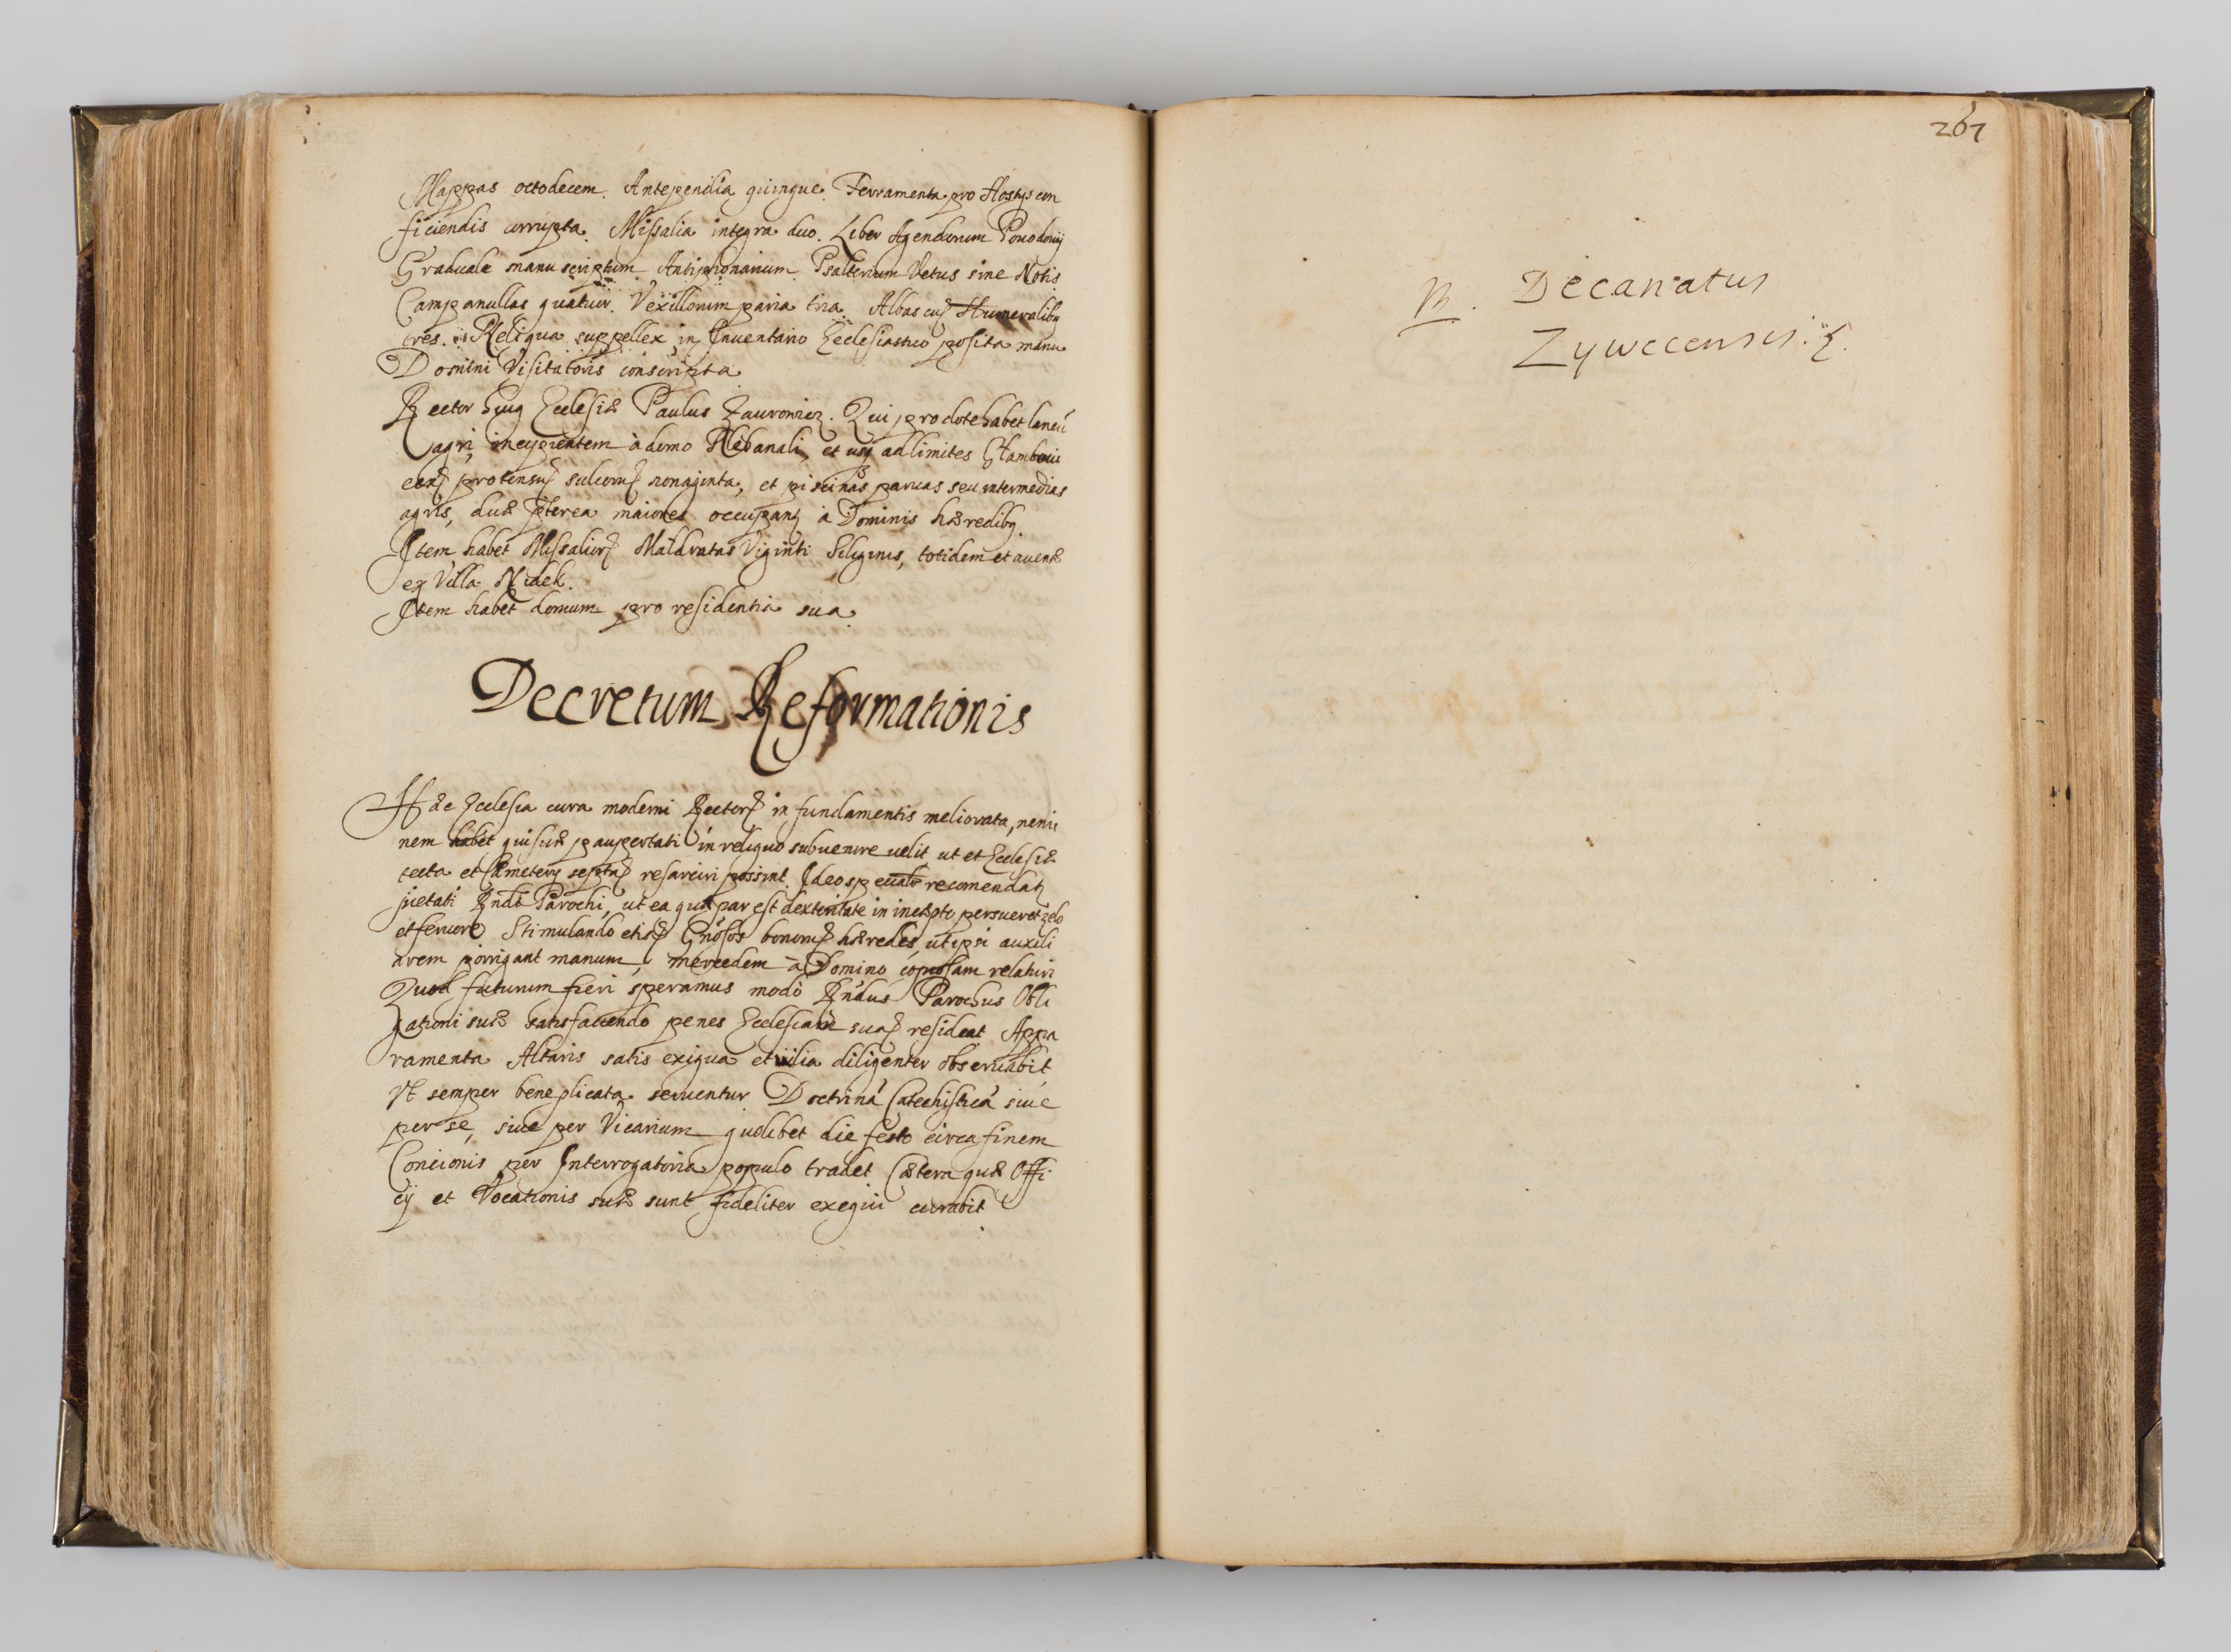 Mappas octodecem. Antependia quinque. Ferramenta pro Hostys con
ficiendis corrupta. Missalia integra duo. Liber Agendorum Pouodouij
Graduale manu scriptum Antiphonarium Psalterium Vetus sine Notis
Campanullas quatuor. Vexillorum paria tria. Albas cu Humeralibq
tres. Reliqua suppellex in Inuentario Ecclesiastico posita manu
Domini Visitatoris conscripta
Rector huiq Ecclesiæ Paulus Zauronicz. Qui pro dote habet laneū
agri, incipientem à domo Plebanali, et usq ad limites Głamboui
protensu sulcorum nonaginta, et piscinas paruas seu intermedias
agris, duæ pterea maiores occupant à Dominis hæredibq
Item habet Missalium Maldratas Viginti Siliginis, totidem et auenæ
ex Villa Nidek.
Item habet domum pro residentia sua
Decretum Reformationis
Hæc Ecclesia cura moderni Rectoris in fundamentis meliorata, nemi
nem habet qui suæ paupertati in reliquo subuenire uelit, ut et Ecclesiæ
tecta et Cæmetery septa resarciri possint. Ideo specialr recomendat
pietati Rndi Parochi, ut ea qua par est dexteritate in incepto perseueret zelo
et feruore Stimulando etia Gnosos bonorum hæredes, ut ipsi auxili
arem porrigant manum, mercedem à Domino copiosam relaturi
Quod futurum fieri speramus modò Rndus Parochus Obli
gationi suæ satisfaciendo penes Ecclesiam sua resideat Appa
ramenta Altaris satis exigua et uilia diligenter obseruabit
Vt semper bene plicata seruentur Doctrinā Catechisticā siue
per se, siue per Vicarium quolibet die festo circa finem
Concionis per Interrogatoria populo tradet Cætera quæ Offi
cij et Vocationis suæ sunt fideliter exequi curabit
267
Decanatus
Zywecensis.